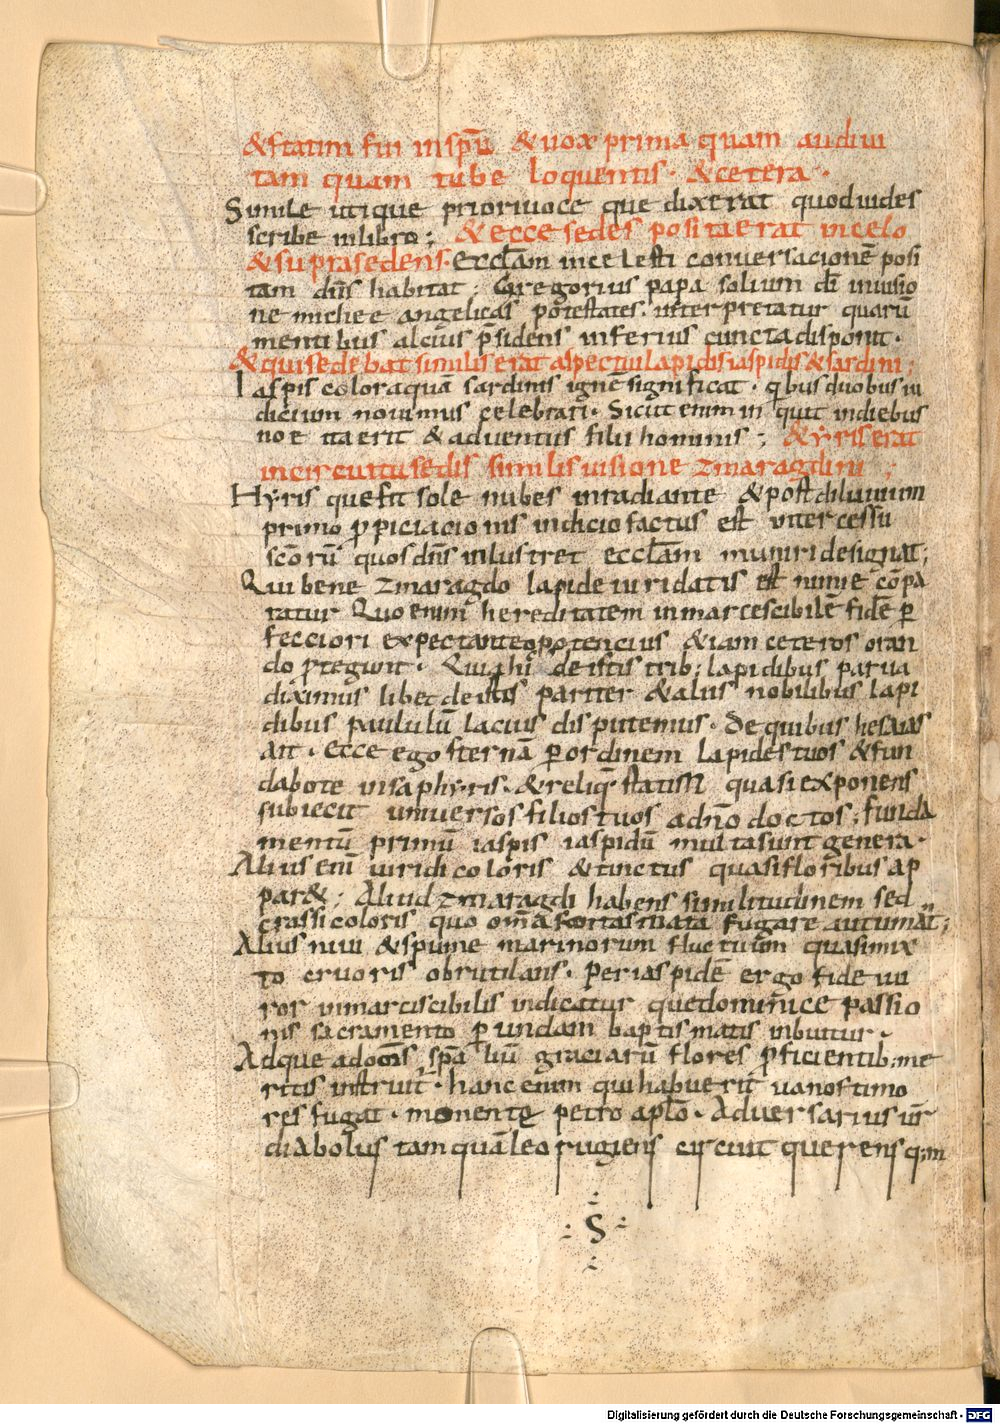 & statim fui in spū & uox prima quam audiui
tam quam tube loquentis · & cetera ·
Simile utique priori uoce que dixerat quod uides
scribe in libro ; & ecce sedes posita erat in celo
& supra sedens · Ecclam in celesti conversacionē posi
tam dn̄s habitat ; Gregorius papa solium dī in uisio
ne michee angelicas potestates · interpretatur quarū
mentibus alcius p̄sidens inferius cuncta disponit ·
& qui sedebat similis erat aspectui lapidis iaspidis & sardini ;
Iaspis color aquā sardinis igne significat · qbus duobus iu
dicium nouimus celebrari · Sicut enim inquit in diebus
noe ita erit & adventus filii hominis ; & yris erat
in circuitu sedis similis uisione zmaragdini ;
Hyris que fit sole nubes inradiante & post diluuium
primo ppiciacionis indicio factus est intercessu
scōrū quos dn̄s inlustret ecclam muniri designat ;
Qui bene zmaragdo lapide uiridatis est nimie cōpa
ratur Quo enim hereditatem inmarcescibilē fidē per
fecciori expectante potencius & iam ceteros oran
do ptegunt · Qui ghi de istis trib; lapidibus parua
diximus libet de istis pariter & aliis nobilibus lapi
dibus paululū lacius disputemus · de quibus hesaias
ait · Ecce ego sternā p ordinem lapides tuos & fun
dabo te in saphyris · & reliq · statim quasi exponens
subiecit universos filios tuos a dn̄o doctos ; funda
mentū primū iaspis iaspidū multa sunt genera ·
Alius enī uiridi coloris & tinctus quasi floribus ap
par& ; Aliud zmaragdi habens similitudinem sed
crassi coloris quo om̄a fantasmata fugare autumāt ;
Alius niui & spume marinorum fluctuum quasi mix
to cruoris obrutilans · Per iaspidē ergo fide ui
ror inmarciscibilis indicatur que dominice passio
nis sacramento p undam baptismatis inbuitur ·
Adque ad om̄s spā liū graciarū flores pficientib; me
ritis instruit · hanc enim qui habuerit uanos timo
res fugat · monente petro aplo · Adversarius ur̄
diabolus tam quā leo rugiens circuit querens q;m
S
Digitalisierung gefördert durch die Deutsche Forschungsgemeinschaft - DFG